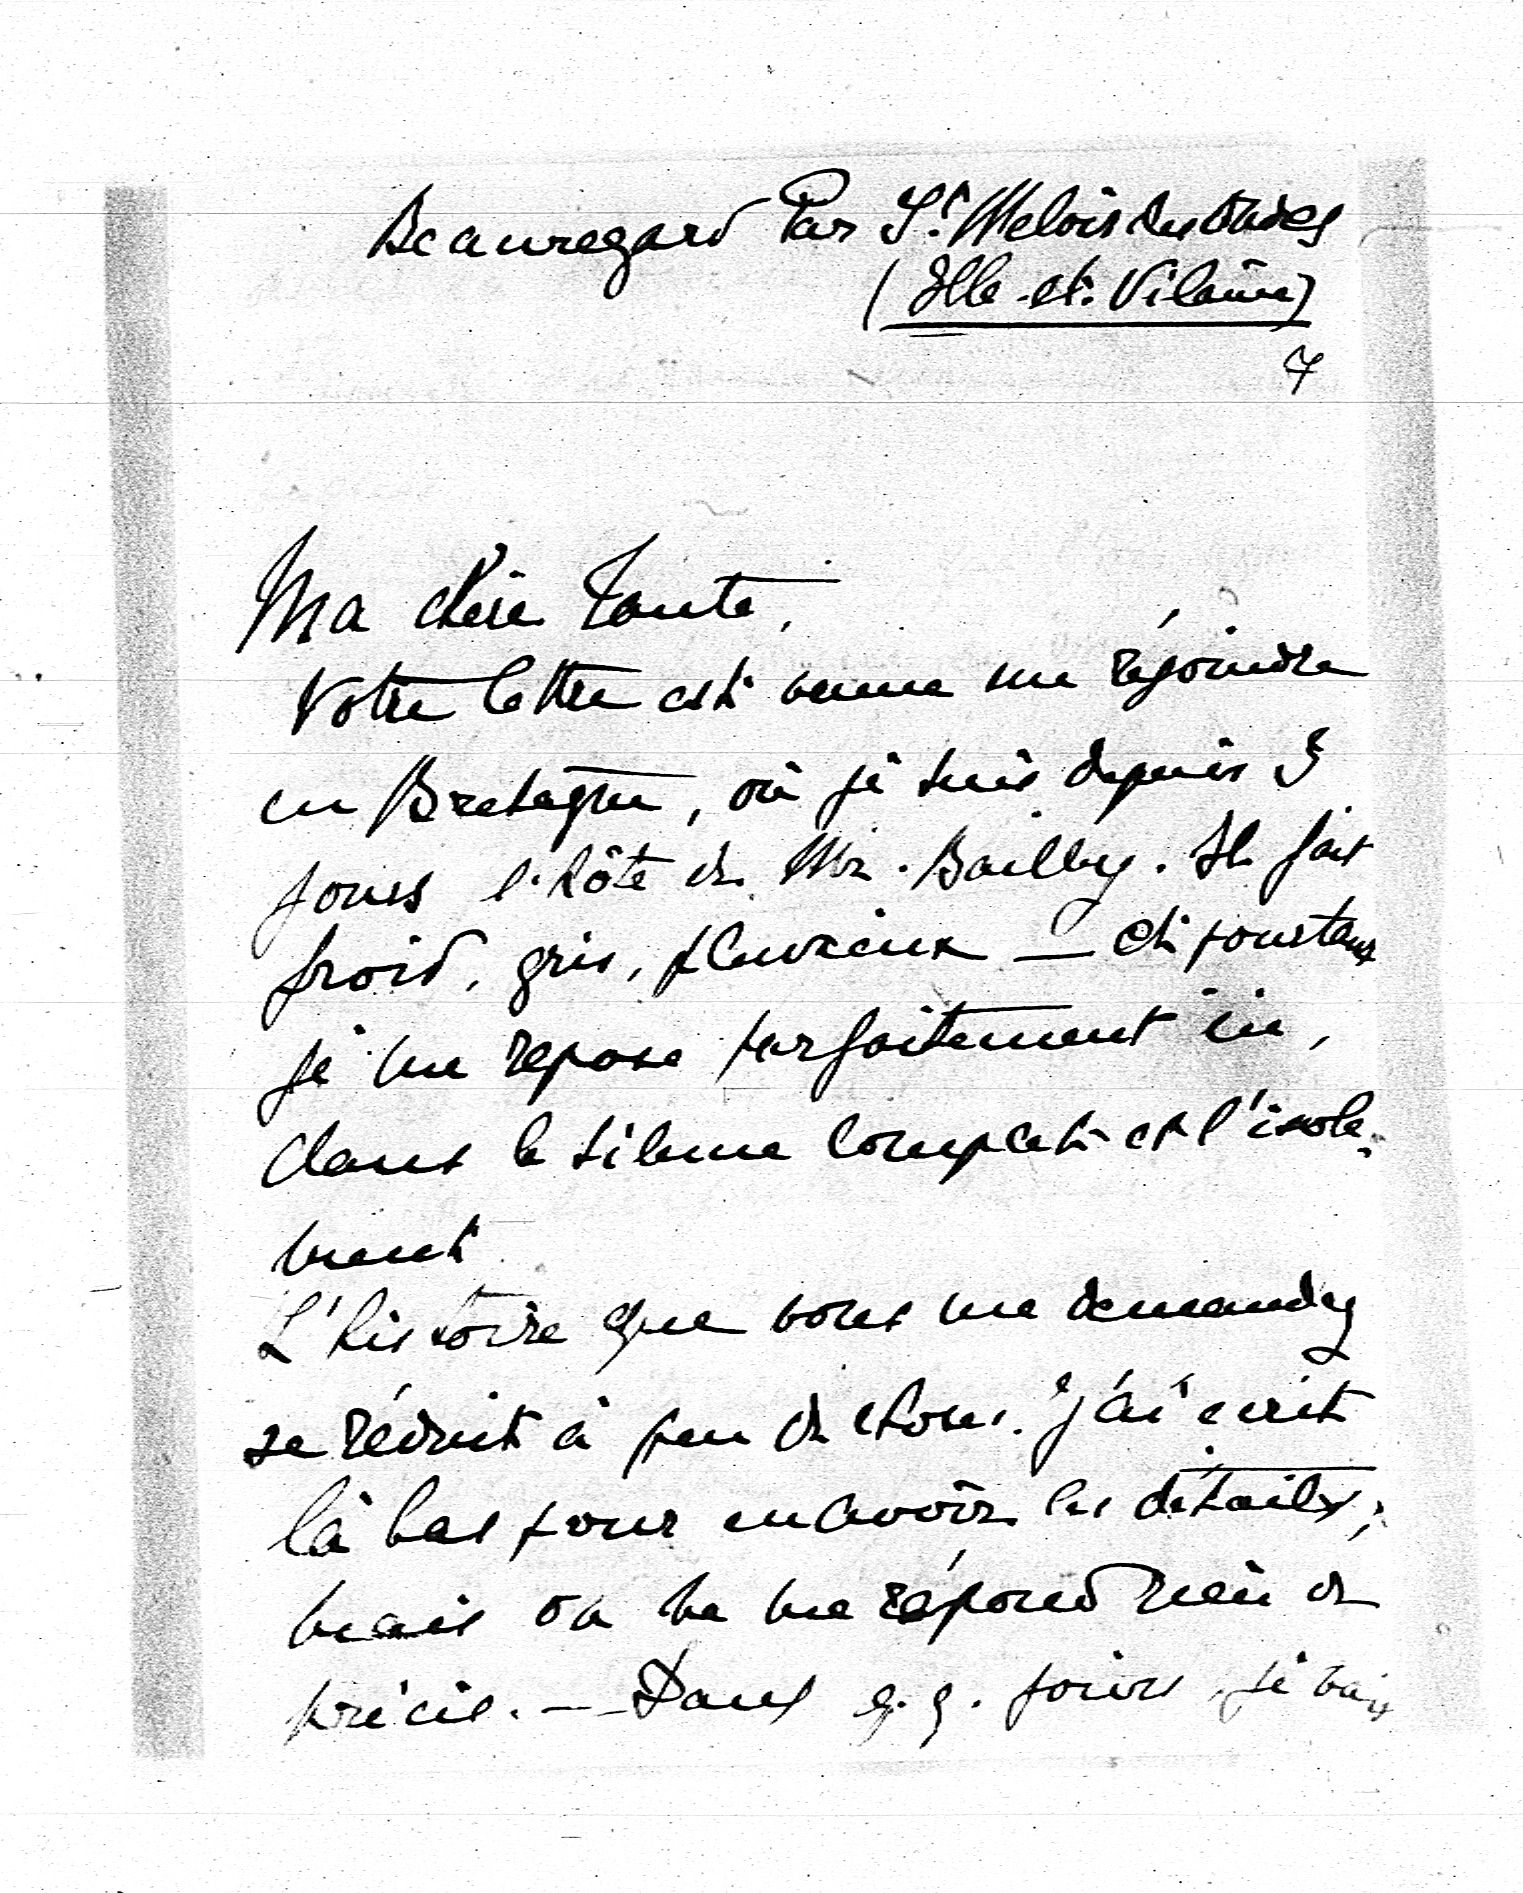 Beauregard Par St. Meloir des Ondes
(Ille-et-Vilaine)
7
Ma chère Tante,
Votre lettre est venue me rejoindre
en Bretagne, où je suis depuis 3
jours l'hôte de Mr. Bailby. Il fait
froid, gris, pluvieux — et pourtant
je me repose parfaitement ici,
dans le silence complet et l'isole-
ment
L'histoire que vous me demandez
se réduit à peu de chose. J'ai écrit
là bas pour en avoir les détails,
mais on ne me répond rien de
précis. — Dans q.q. jours, je vais